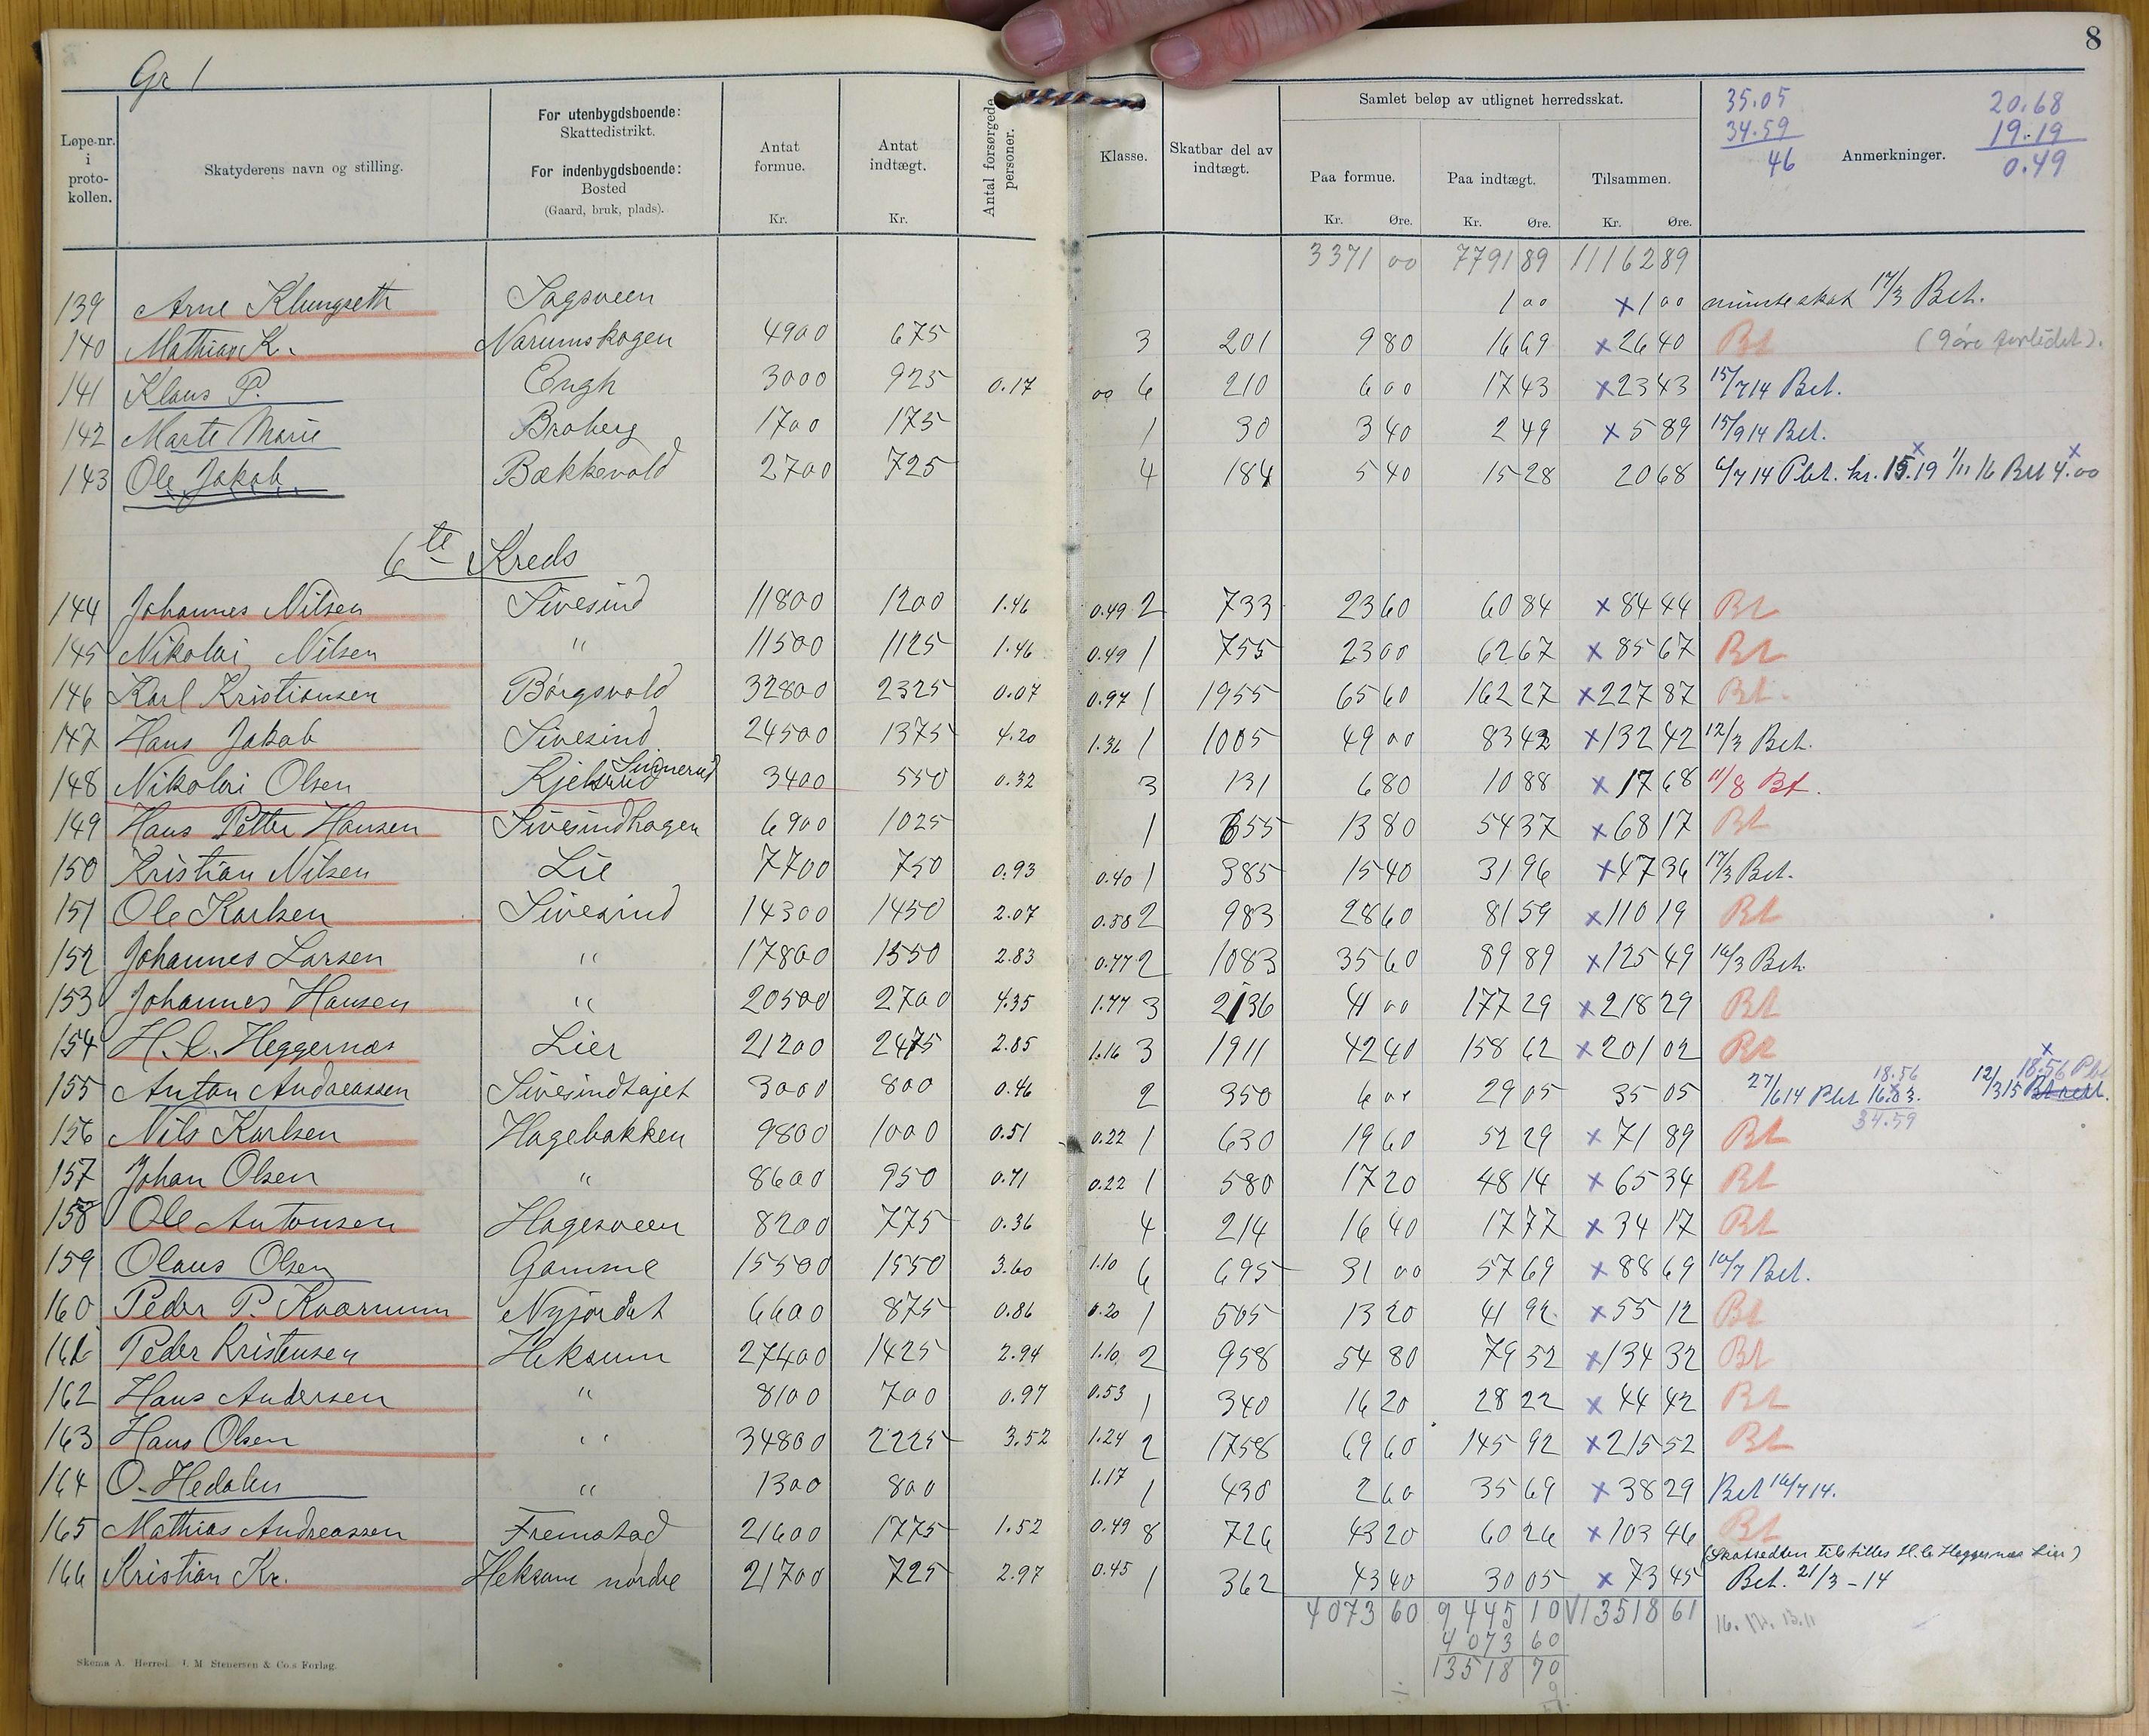 Gr 1
8
35.05
34.59
46
20.68
19.19
0.49
Løpe-nr. i proto-kollen.
Skatyderens navn og stilling.
For utenbygdsboende: Skattedistrikt.
For indenbygdsboende: Bosted (Gaard, bruk, plads).
Antat formue. Kr.
Antat indtægt. Kr.
Antal forsørgede personer.
Klasse.
Skatbar del av indtægt.
Samlet beløp av utlignet herredsskat.
Paa formue. Kr. Øre.
Paa indtægt. Kr. Øre.
Tilsammen. Kr. Øre.
Anmerkninger.
3371 00 7791 89 11162 89
139 Arne Klungseth Sagsveen 1 00 x 1 00 minsteskat 17/3 Bet.
140 Mathias K. Narumskogen 4900 675 3 201 9 80 16 69 x 26 40 Bt (9 øre forlidet).
141 Klaus P. Engh 3000 925 0.17 00 6 210 6 00 17 43 x 23 43 15/7 14 Bet.
142 Marte Marie Broberg 1700 175 1 30 3 40 2 49 x 5 89 15/9 14 Bet.
143 Ole Jakob Bækkevold 2700 725 4 184 5 40 15 28 20 68 6/7 14 Pbt. kr. 15.19 1/11 16 Bet 4.00
6te Kreds
144 Johannes Nilsen Sivesind 11800 1200 1.46 0.49 2 733 23 60 60 84 x 84 44 Bt
145 Nikolai Nilsen " 11500 1125 1.46 0.49 1 755 23 00 62 67 x 85 67 Bt
146 Karl Kristiansen Børgsvold 32800 2325 0.07 0.97 1 1955 65 60 162 27 x 227 87 Bt.
147 Hans Jakob Sivesind 24500 1375 4.20 1.36 1 1005 49 00 83 42 x 132 42 12/3 Bet.
148 Nikolai Olsen 3400 550 0.32 3 131 6 80 10 88 x 17 68 11/8 Bt.
149 Hans Petter Hansen Sivesindhagen 6900 1025 1 655 13 80 54 37 x 68 17 Bt
150 Kristian Nilsen Lie 7700 750 0.93 0.40 1 385 15 40 31 96 x 47 36 17/3 Bet.
151 Ole Karlsen Sivesind 14300 1450 2.07 0.58 2 983 28 60 81 59 x 110 19 Bt
152 Johannes Larsen " 17800 1550 2.83 0.77 2 1083 35 60 89 89 x 125 49 16/3 Bet.
153 Johannes Hansen " 20500 2700 4.35 1.77 3 2136 41 00 177 29 x 218 29 Bt
154 H. C. Heggernæs Lier 21200 2475 2.85 1.16 3 1911 42 40 158 62 x 201 02 Bt
155 Anton Andreassen Sivesindhajet 3000 800 0.46 2 350 6 00 29 05 35 05 27/6 14 Pbt 16.03. 18.56 34.59 12/3 15 x 18.56 Pbt
156 Nils Karlsen Hagebakken 9800 1000 0.51 0.22 1 630 19 60 52 29 x 71 89 Bt
157 Johan Olsen " 8600 950 0.71 0.22 1 580 17 20 48 14 x 65 34 Bt
158 Ole Antonsen Hagesveen 8200 775 0.36 4 214 16 40 17 77 x 34 17 Bt
159 Olaus Olsen Gamme 15500 1550 3.60 1.10 6 695 31 00 57 69 x 88 69 10/7 Bet.
160 Peder P. Kvarnum Nyjordet 6600 875 0.86 0.20 1 505 13 20 41 92 x 55 12 Bt
161 Peder Kristensen Heksum 27400 1425 2.94 1.10 2 958 54 80 79 52 x 134 32 Bt
162 Hans Andersen " 8100 700 0.97 0.53 1 340 16 20 28 22 x 44 42 Bt
163 Hans Olsen " 34800 2225 3.52 1.24 2 1758 69 60 145 92 x 215 52 Bt
164 O. Hedalen " 1300 800 1.17 1 430 2 60 35 69 x 38 29 Bet 16/7 14.
165 Mathias Andreassen Fremstad 21600 1775 1.52 0.49 8 726 43 20 60 26 x 103 46 Bt
166 Kristian Kr. Heksum nordre 21700 725 2.97 0.45 1 362 43 40 30 05 x 73 45 (Skatsedlen tilstilles H. C. Heggernæs Lier) Bet. 21/3 - 14
4073 60 9445 10 V13518 61
4073 60
13518 70
9
Skema A. Herred. J. M. Stenersen & Co.s Forlag.